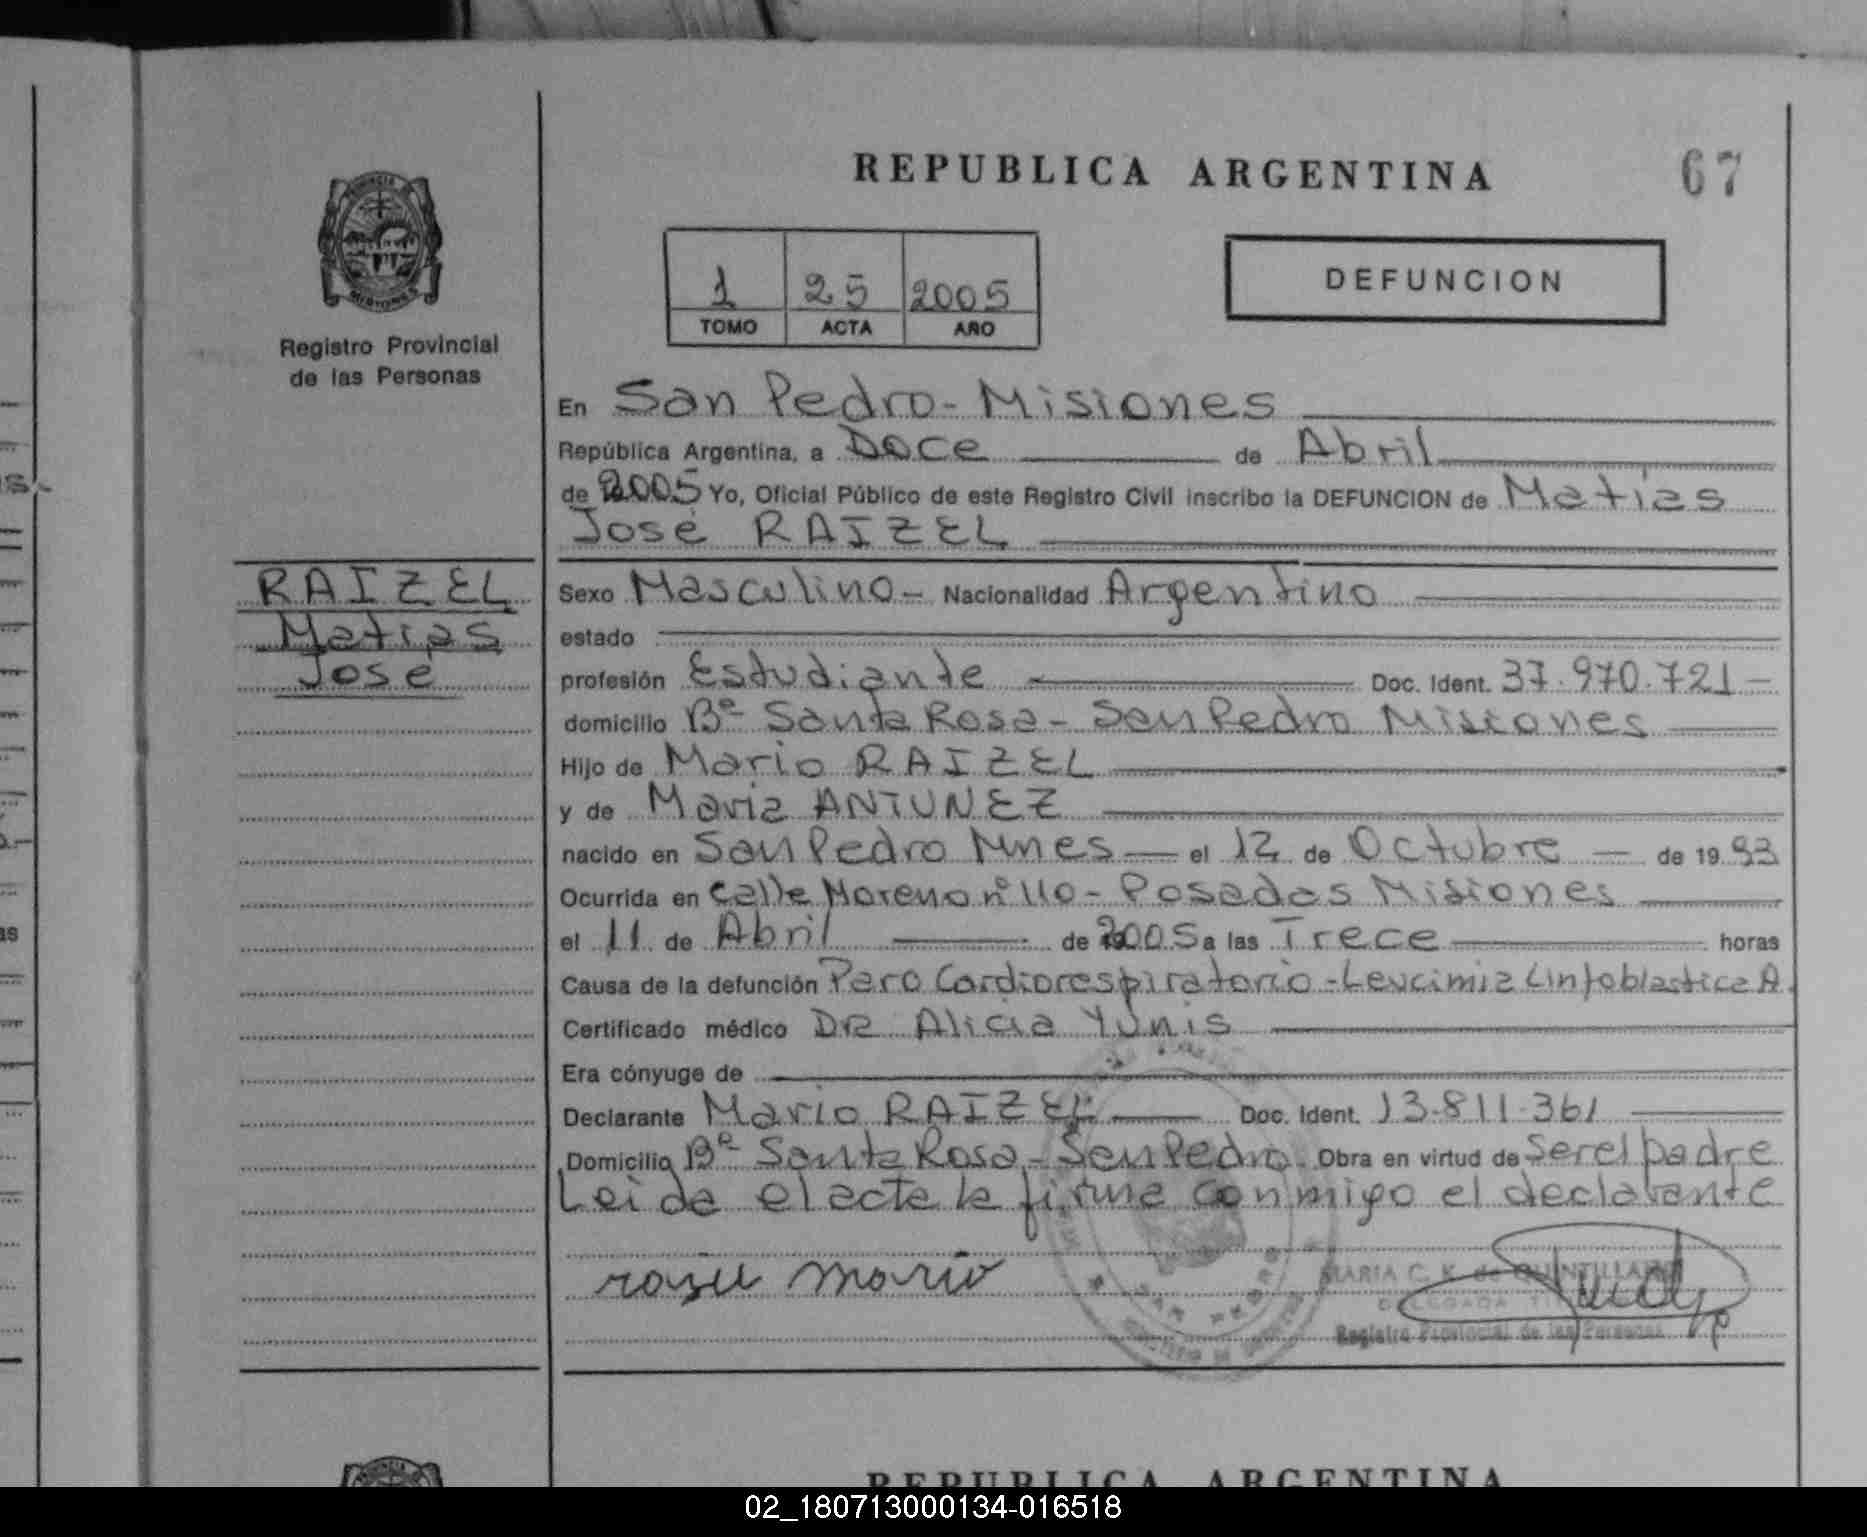 REPUBLICA ARGENTINA
67
PROVINCIA DE
MISIONES
Registro Provincial
de las Personas
1 25 2005
TOMO ACTA AÑO
DEFUNCION
En San Pedro - Misiones
República Argentina, a Doce de Abril
de 2005 Yo, Oficial Público de este Registro Civil inscribo la DEFUNCION de Matías
José RAIZEL
RAIZEL
Matias
José
Sexo Masculino - Nacionalidad Argentino
estado
profesión Estudiante Doc. Ident. 37.970.721 -
domicilio Bº Santa Rosa - San Pedro Misiones
Hijo de Mario RAIZEL
y de Maria ANTUNEZ
nacido en San Pedro Mnes - el 12 de Octubre - de 19 93
Ocurrida en Calle Moreno nº 110 - Posadas Misiones
el 11 de Abril de 2005 a las Trece horas
Causa de la defunción Paro Cardiorespiratorio - Leucimia Linfoblastica A.
Certificado médico DRA Alicia Yunis
Era cónyuge de
Declarante Mario RAIZEL Doc. Ident. 13.811.361
Domicilio Bº Santa Rosa - San Pedro. Obra en virtud de Ser el padre
Leida el acta la firma conmigo el declarante
Mario
MARIA C. K. de QUINTILLAN
DELEGADA
Registro Provincial de las Personas
SAN PEDRO
REPUBLICA ARGENTINA
02_180713000134-016518